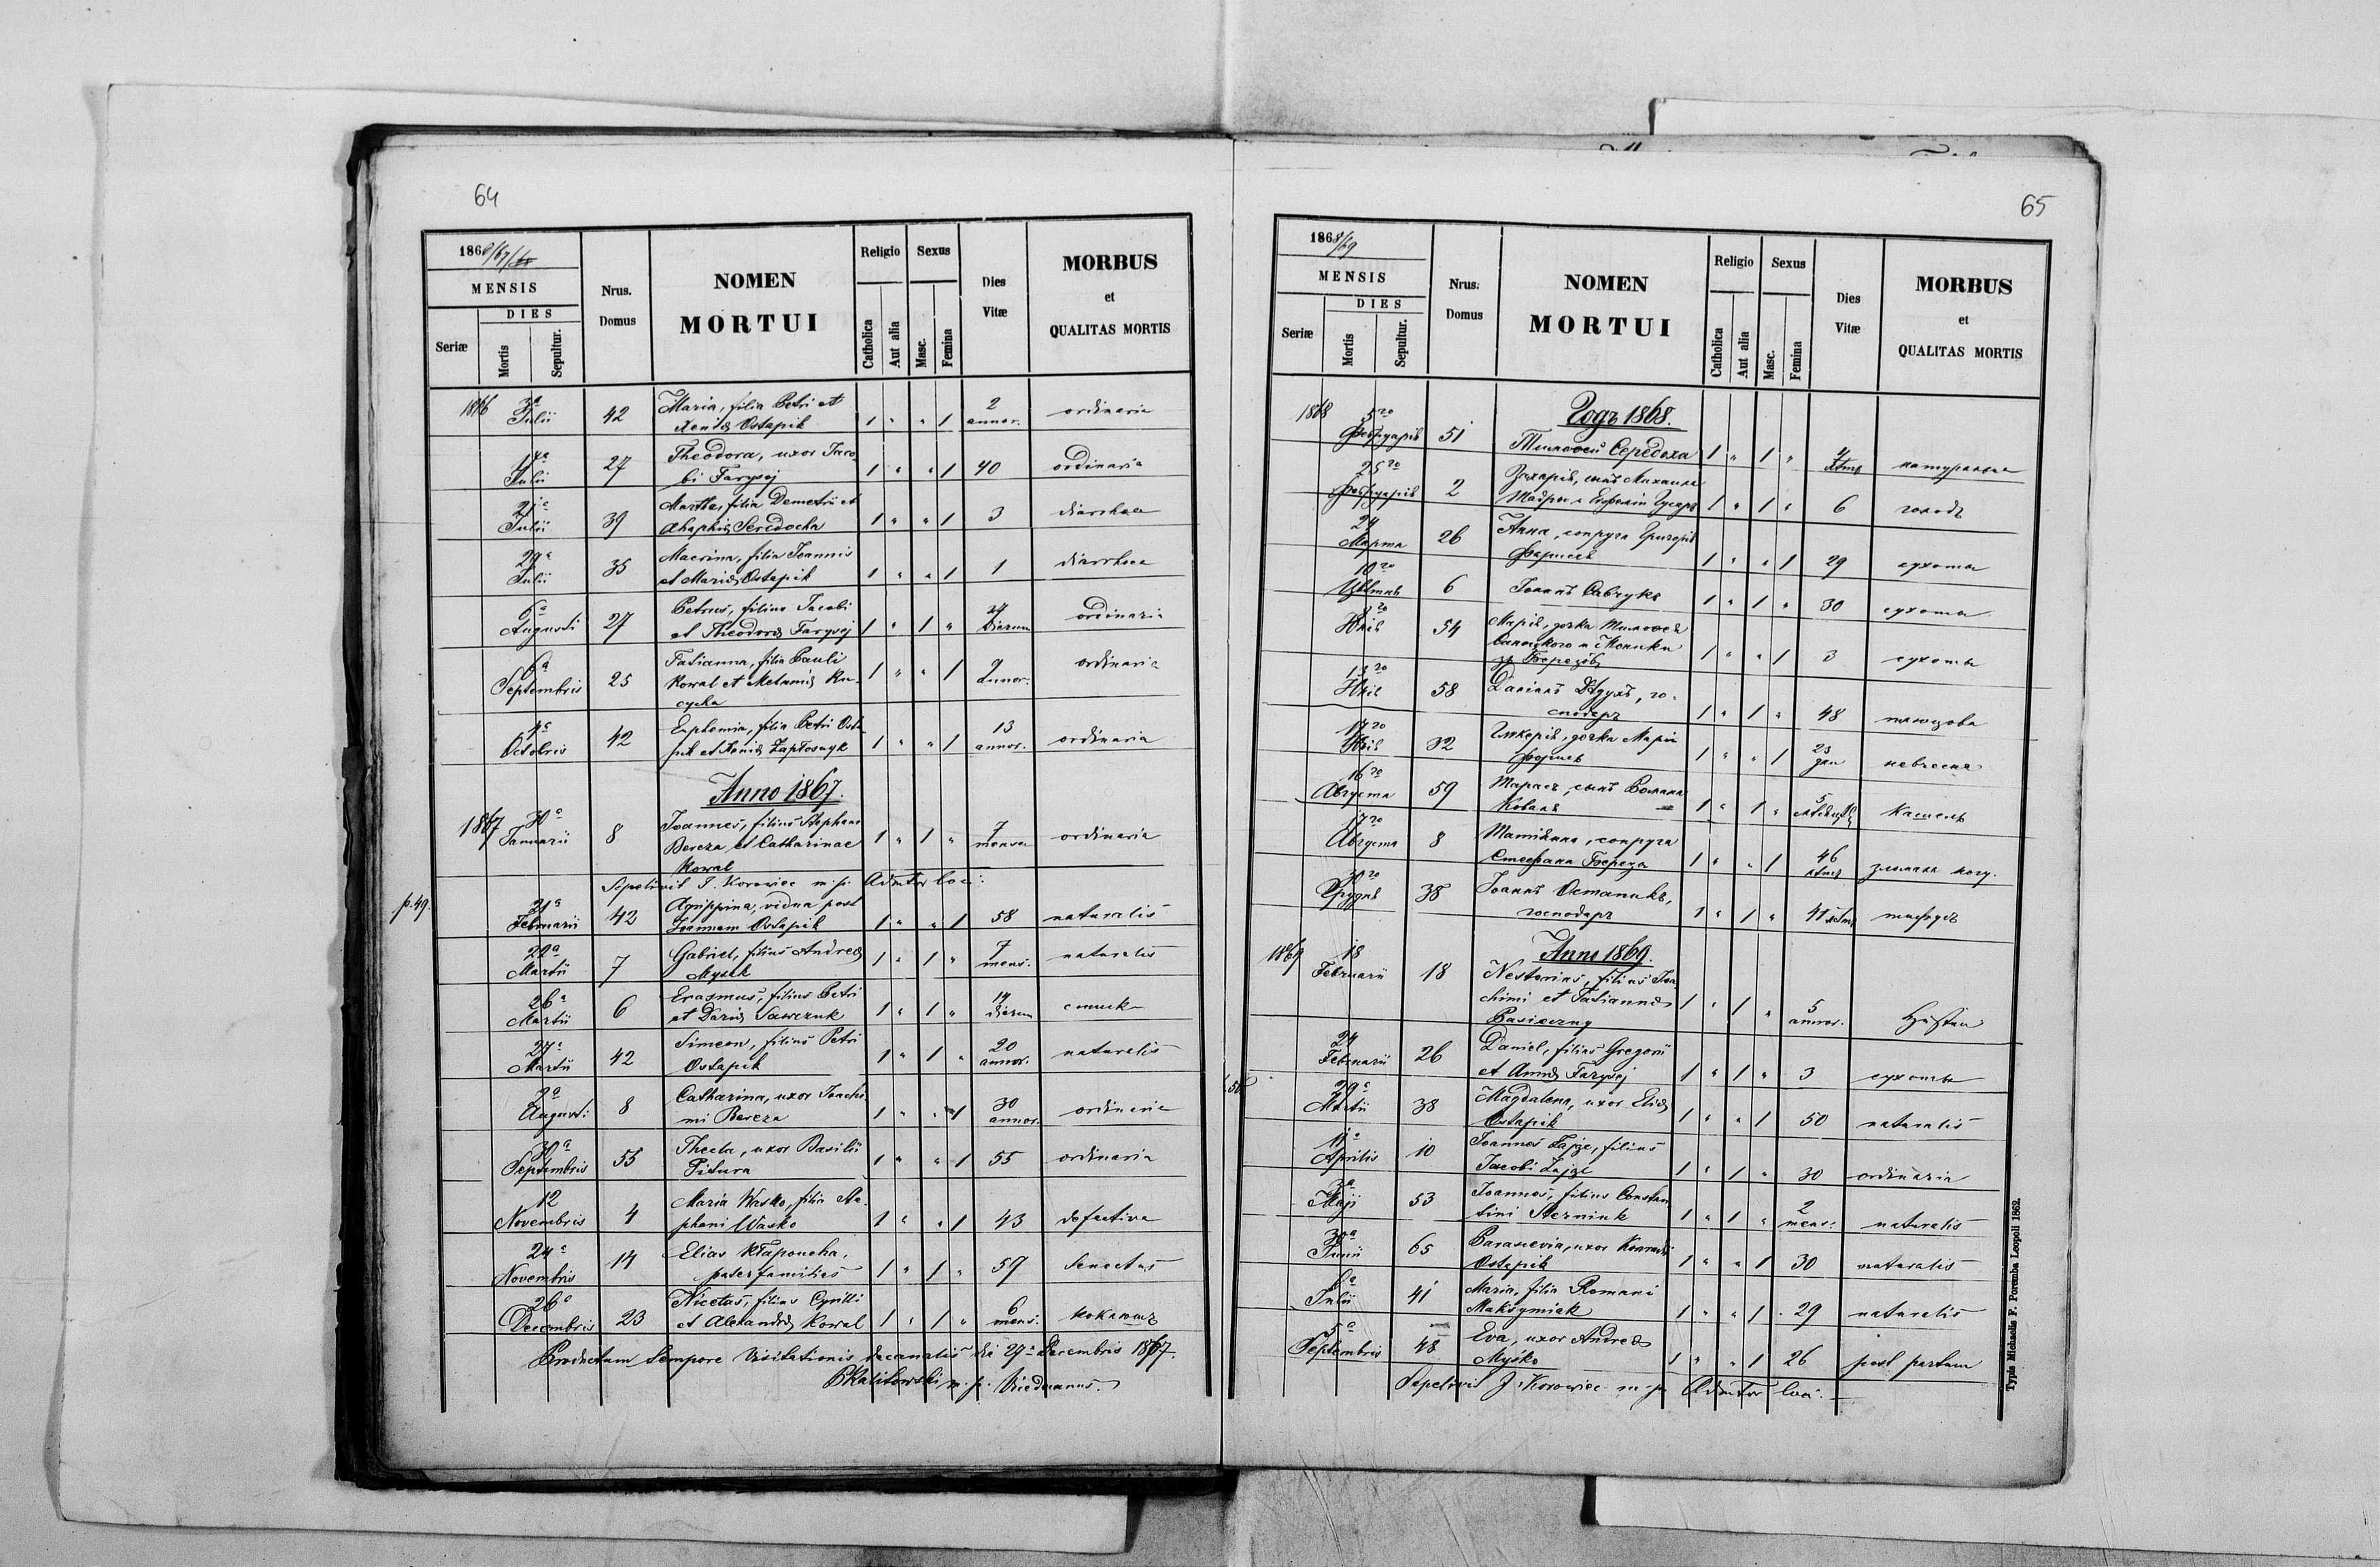 64
1866/67/68
MENSIS
Seriæ
DIES
Mortis
Sepultur.
Nrus. Domus
NOMEN
MORTUI
Religio
Catholica
Aut alia
Sexus
Masc.
Femina
Dies Vitæ
MORBUS
et
QUALITAS MORTIS
1866 3a Julii 42 Maria, filia Petri et 1 " " 1 2 annor. ordinaria
Xeniæ Ostapik
Julii 27 Theodora, uxor Jaco- 1 " " 1 40 ordinaria
bi Farysej
21a Julii 39 Martha, filia Demetrii et 1 " " 1 3 diarrhaea
Ahaphiæ Seredocha
29a Julii 35 Macrina, filia Joannis 1 " " 1 1 diarrhaea
et Mariæ Ostapik
6a Augusti 27 Petrus, filius Jacobi 1 " 1 " 27 dierum ordinaria
et Theodoræ Farysej
6a Septembris 25 Tatianna, filia Pauli 1 " " 1 9 annor. ordinaria
Kowal et Melaniæ Ku-
cyeha
4a Octobris 42 Euphemia, filia Petri Osta- 1 " " 1 13 annor. ordinaria
pik et Xeniæ
Anno 1867.
1867 30a Januarii 8 Joannes, filius Stephani 1 " 1 " 7 menses ordinaria
Bereza et Catharinae
Kowal
Sepelivit J. Korowiec m. p. Admtor loci:
p. 49.
21a Februarii 42 Agrippina, vidua post 1 " " 1 58 naturalis
Joannem Ostapik
22a Martii 7 Gabriel, filius Andreæ 1 " 1 " 7 mens. naturalis
Mysek
26a Martii 6 Erasmus, filius Petri 1 " 1 " 14 dierum
et Dariæ Sawczuk
27a Martii 42 Simeon, filius Petri 1 " 1 " 20 annor. naturalis
Ostapik
2a Augusti 8 Catharina, uxor Joachi- 1 " " 1 30 annor. ordinaria
mi Bereza
30a Septembris 55 Thecla, uxor Basilii 1 " " 1 55 ordinaria
Pitura
12 Novembris 4 Maria Wasko, filia Ste- 1 " " 1 43 defectiva
phani Wasko
24a Novembris 14 Elias Kłapoucha, 1 " 1 " 59 Senectus
paterfamilias
26a Decembris 23 Nicetas, filius Cyrilli 1 " 1 " 6 mens.
et Alexandræ Kowal
Productum tempore Visitationis decanalis die 29a Decembris 1867.
m. p. Vicedecanus.
65
1868/69
MENSIS
Seriæ
DIES
Mortis
Sepultur.
Nrus. Domus
NOMEN
MORTUI
Religio
Catholica
Aut alia
Sexus
Masc.
Femina
Dies Vitæ
MORBUS
et
QUALITAS MORTIS
Годъ 1868.
1868 5го Февруарія 51 Тимофей Середоха 1 " 1 " 4
25го Февруарія 2 Захарія, сынъ Михаила 1 " 1 " 6 голодъ
24 Марта 26 Анна, сопруга Григорія 1 " " 1 29 сухоты
Фарисей
10го Цвѣтня 6 Іоаннъ Савчукъ 1 " 1 " 30 сухоты
54 Марія, дочка Тимофея 1 " " 1 3 сухоты
13го 58 Даніилъ Дѣдухъ, го- 1 " 1 " 48
сподарь
17го 32 Гликерія, дочка Маріи 1 " " 1 23 дни
16го Августа 59 Тарасъ, сынъ Романа 1 " 1 " 5 кашель
Коваля
17го Августа 8 Татіянна, сопруга 1 " " 1 46 лѣтъ
Стефана Береза
30го Грудня 38 Іоаннъ Остапикъ, 1 " 1 " 41 лѣтъ тифусъ
господарь
Anno 1869.
1869 18 Februarii 18 Nestorius, filius Joa- 1 " 1 " 5 annor. Husten
chimi et Tatiannæ
24 Februarii 26 Daniel, filius Gregorii 1 " 1 " 3 сухоты
et Annæ Farysej
29a Martii 38 Magdalena, uxor Eliæ 1 " " 1 50 naturalis
Ostapik
11a Aprilis 10 Joannes Zajze, filius 1 " 1 " 30 ordinaria
Jacobi Zajze
3a Maji 53 Joannes, filius Constan- 1 " 1 " 2 mens: naturalis
tini Sterniuk
30a Junii 65 Parascevia, uxor Konradi 1 " " 1 30 naturalis
Ostapik
6a Julii 41 Maria, filia Romani 1 " " 1 29 naturalis
Maksymiak
5a Septembris 48 Eva, uxor Andreæ 1 " " 1 26 post partum
Myśko
Sepelivit J. Korowiec m. p. Admtor loci.
Typis Michaelis F. Poremba Leopoli 1862.